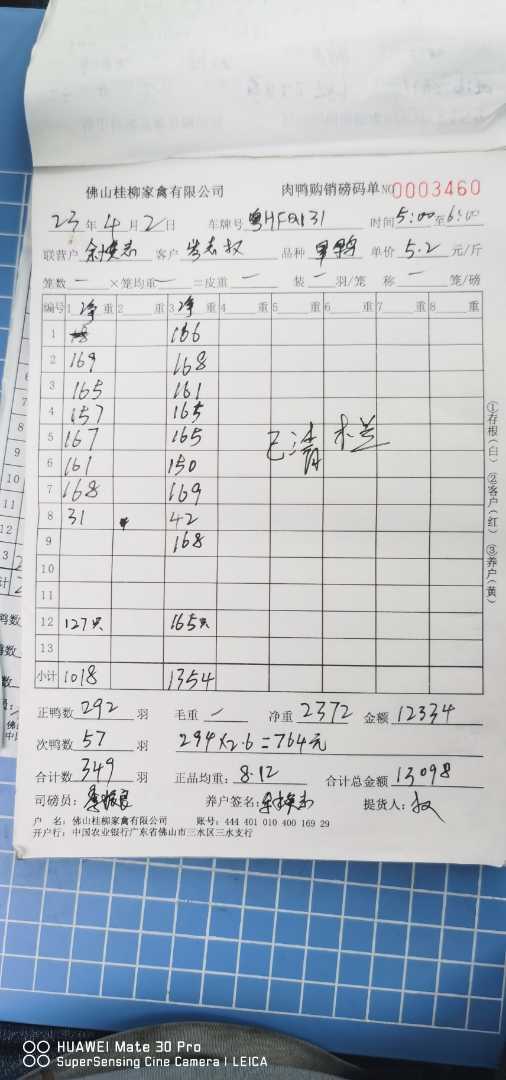 佛山桂柳家禽有限公司 肉鸭购销磅码单 NO 0003460
23年4月2日 车牌号 粤HFQ131 时间5:00至6:00
联营户 客户 品种 单价 5.2 元/斤
笼数 一 ×笼均重 一 =皮重 一 装 一 羽/笼 称 一 笼/磅
编号 1 净 重 2 重 3 净 重 4 重 5 重 6 重 7 重 8 重
1 166
2 169 168
3 165 161
4 157 165
5 167 165 已清栏
6 161 150
7 168 169
8 31 42
9 168
10
11
12 127只 165只
13
小计 1018 1354
正鸭数 292 羽 毛重 一 净重 2372 金额 12334
次鸭数 57 羽 294×2.6=764元
合计数 349 羽 正品均重: 8.12 合计总金额 13098
司磅员: 养户签名: 提货人: 权
户 名: 佛山桂柳家禽有限公司 账号: 444 401 010 400 169 29
开户行: 中国农业银行广东省佛山市三水区三水支行
①存根(白) ②客户(红) ③养户(黄)
HUAWEI Mate 30 Pro
SuperSensing Cine Camera | LEICA